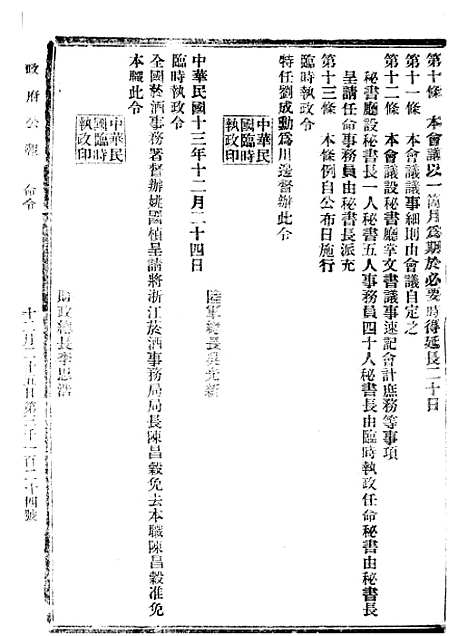 第十條　本會議以一箇月爲期於必要時得延長二十日
第十一條　本會議議事細則由會議自定之
第十二條　本會議設秘書廳掌文書議事速記會計庶務等事項
秘書廳設秘書長一人秘書五人事務員四十人秘書長由臨時執政任命秘書由秘書長
呈請任命事務員由秘書長派充
第十三條　本條例自公布日施行
臨時執政令
特任劉成勳爲川邊督辦此令
中華民
國臨時
執政印
陸軍總長吳光新
中華民國十三年十二月二十四日
臨時執政令
全國菸酒事務署督辦姚國楨呈請將浙江菸酒事務局局長陳昌穀免去本職陳昌穀准免
本職此令
中華民
國臨時
執政印
財政總長李思浩
政府公報　命令
十二月二十五日第三千一百二十四號